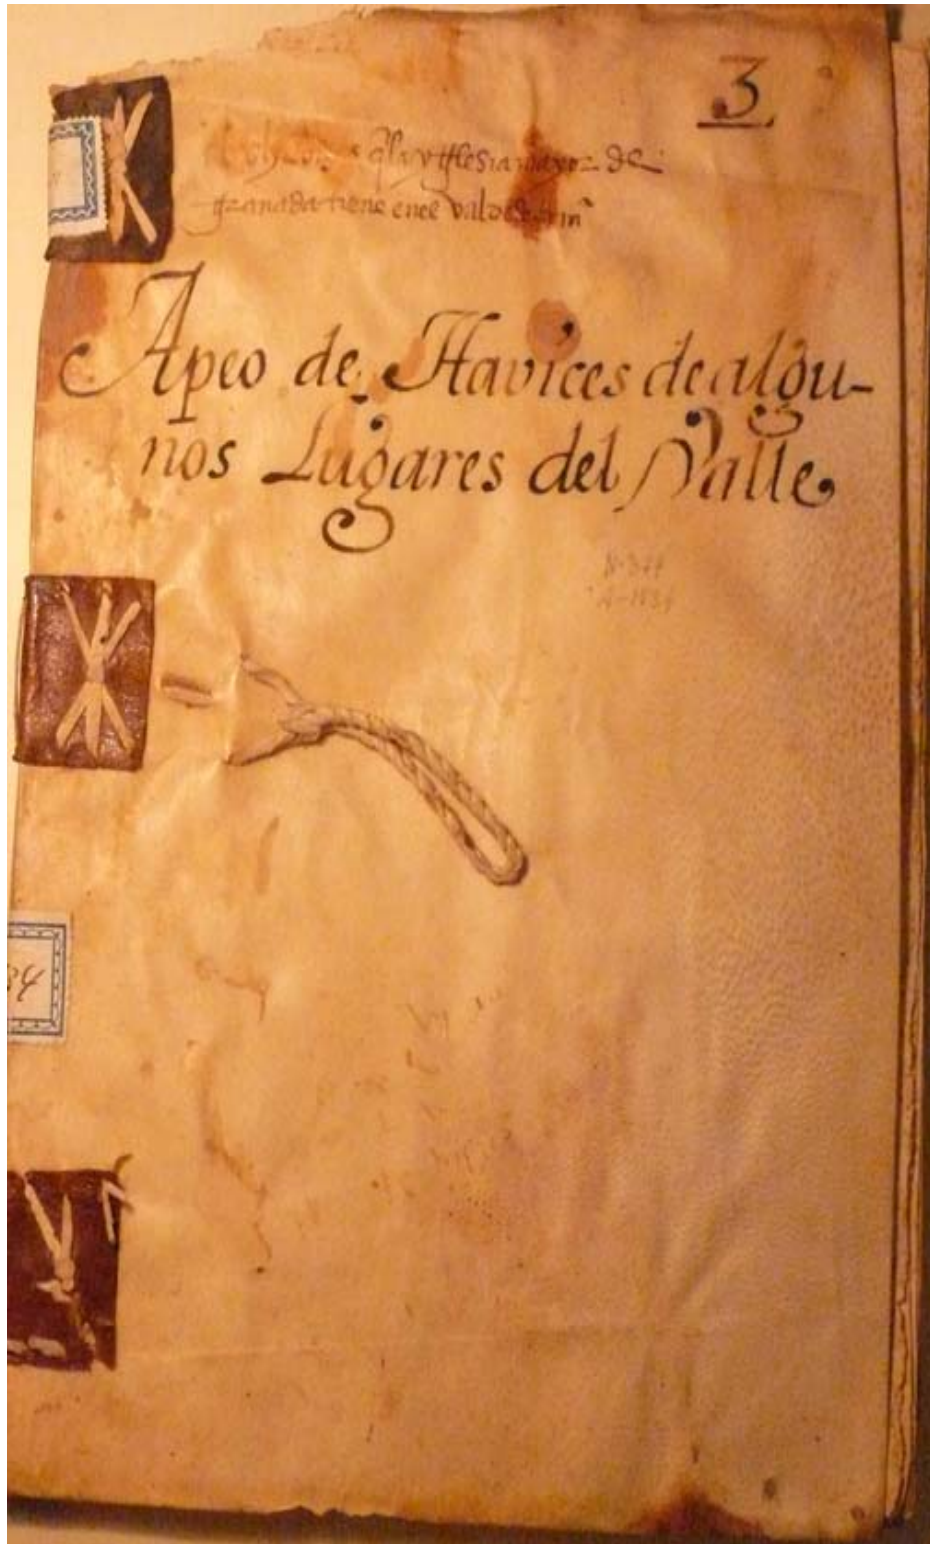 3
q la yglesia mayor de
granada tiene en el val de
Apeo de Havices de algu-
nos Lugares del Valle
34